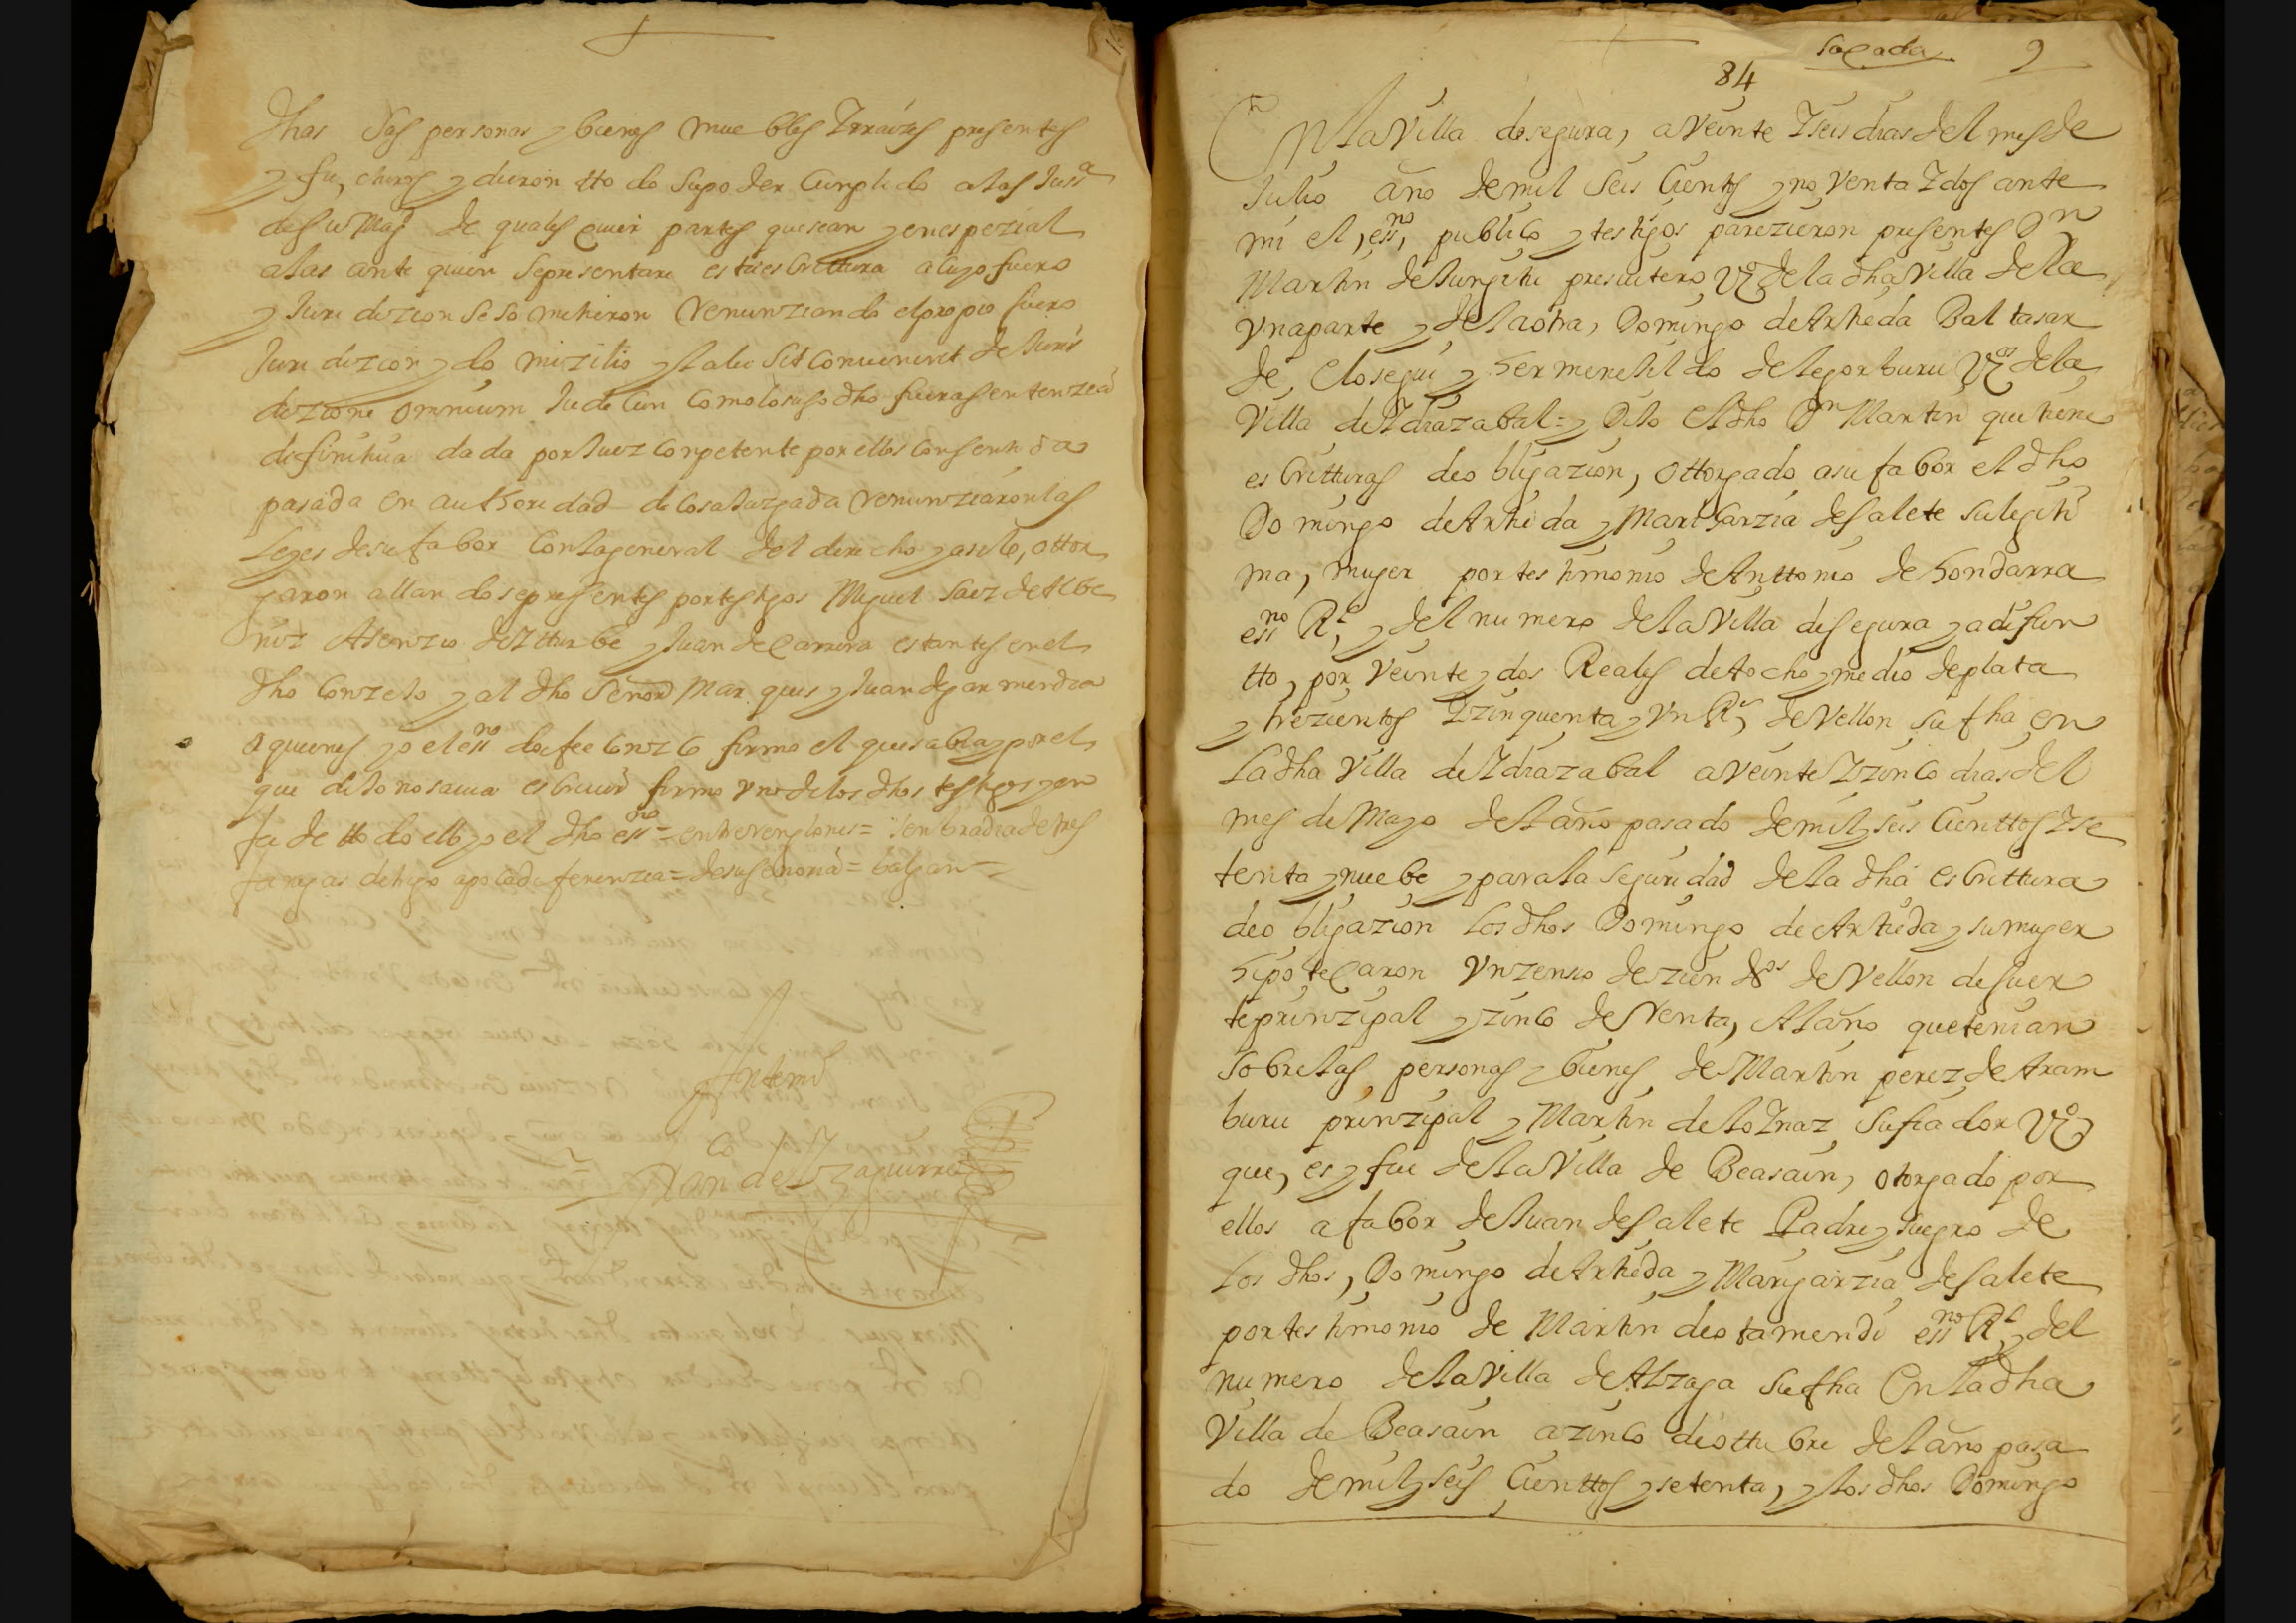 dhas sus personas y bienes muebles Y rraizes presentes
y fu, churos y dieron tto do su poder Cunplido a las Juss^a
de su Mag^d de quales quier partes que sean y en espezial
a las ante quien se presentare esta escrittura a cuyo fuero
y Juri dizion se so metieron Renunziando el propio fuero
Juri dizion y do mizilio y la lei sit convenerit de Juris
dizione omnium Judicun como lo suso dho fuera sentenzia
difinitiua dada por Juez conpetente por ellos consentida
pasada en authoridad de cosa Juzgada renunziaron las
Leyes de su fabor con la general del derecho y asi lo, ottor
garon allandose presentes por testigos Miguel Saez de Albe
niz Asenzio de Yturbe y Juan de Carrera estantes en el
dho Conzeio y al dho Señor Marquis y Juan de garmendia
a quienes yo el ess^no doi fee conozco firmo el que sabia y por el
que dixo no sauia escriuir firmo vno de los dhos testigos y en
fe de tto do ello yo el dho ess^no = entre renglones = senbradia de tres
fanegas de trigo apoca diferenzia = de su señoria = balgan =
Ante mi
Fran^co de Yzaguirre
sacada 9
84
En la Villa de segura, a Veinte Y seis dias del mes de
Julio año de mil seis Cientos y no venta Y dos ante
mi el, ess^no, publico y testigos parezieron presentes D^n
Martin de Aungitu presuitero V^o de la dha Villa de la
vna parte y de la otra, Domingo de Artieda Baltasar
de, Elosegui y hermenexildo de legorburu V^os de la
Villa de Ydiazabal = y Dixo el dho D^n Martin que tiene
escritturas de o bligazion, ottorgado a su fabor el dho
Domingo de Artieda y Mari Garzia de salete su legiti
ma, muger por testimonio de Anttonio de hondarra
ess^no R^l, y del numero de la Villa de segura ya difun
tto, por veinte y dos Reales de Aocho y medio de plata
y trezientos Y zinquenta y vn R^s, de vellon su fha en
La dha villa de Ydiazabal a veinte Y zinco dias del
mes de Mayo del año pasado de mil y seis Cienttos Y se
tenta y nuebe y para la seguridad de la dha escrittura
de o bligazion los dhos Domingo de Artieda y su muger
hipotecaron vn zenso de zien d^os de vellon de suer
te prinzipal y zinco de Renta, Al año que tenian
sobre las personas y bienes de Martin perez de Aram
buru prinzipal y Martin de loYnaz su fiador V^o
que, es y fue de la Villa de Beasain, otorgado por
ellos a fabor de Juan de salete Padre y suegro de
Los dhos, Domingo de Artieda y Marigarzia de salete
por testimonio de Martin de otamendi ess^no R^l y del
numero de la villa de Alzaga su fha En la dha
Villa de Beasain a zinco de ottubre del año pasa
do de mil y seis Cienttos y setenta, y los dhos Domingo